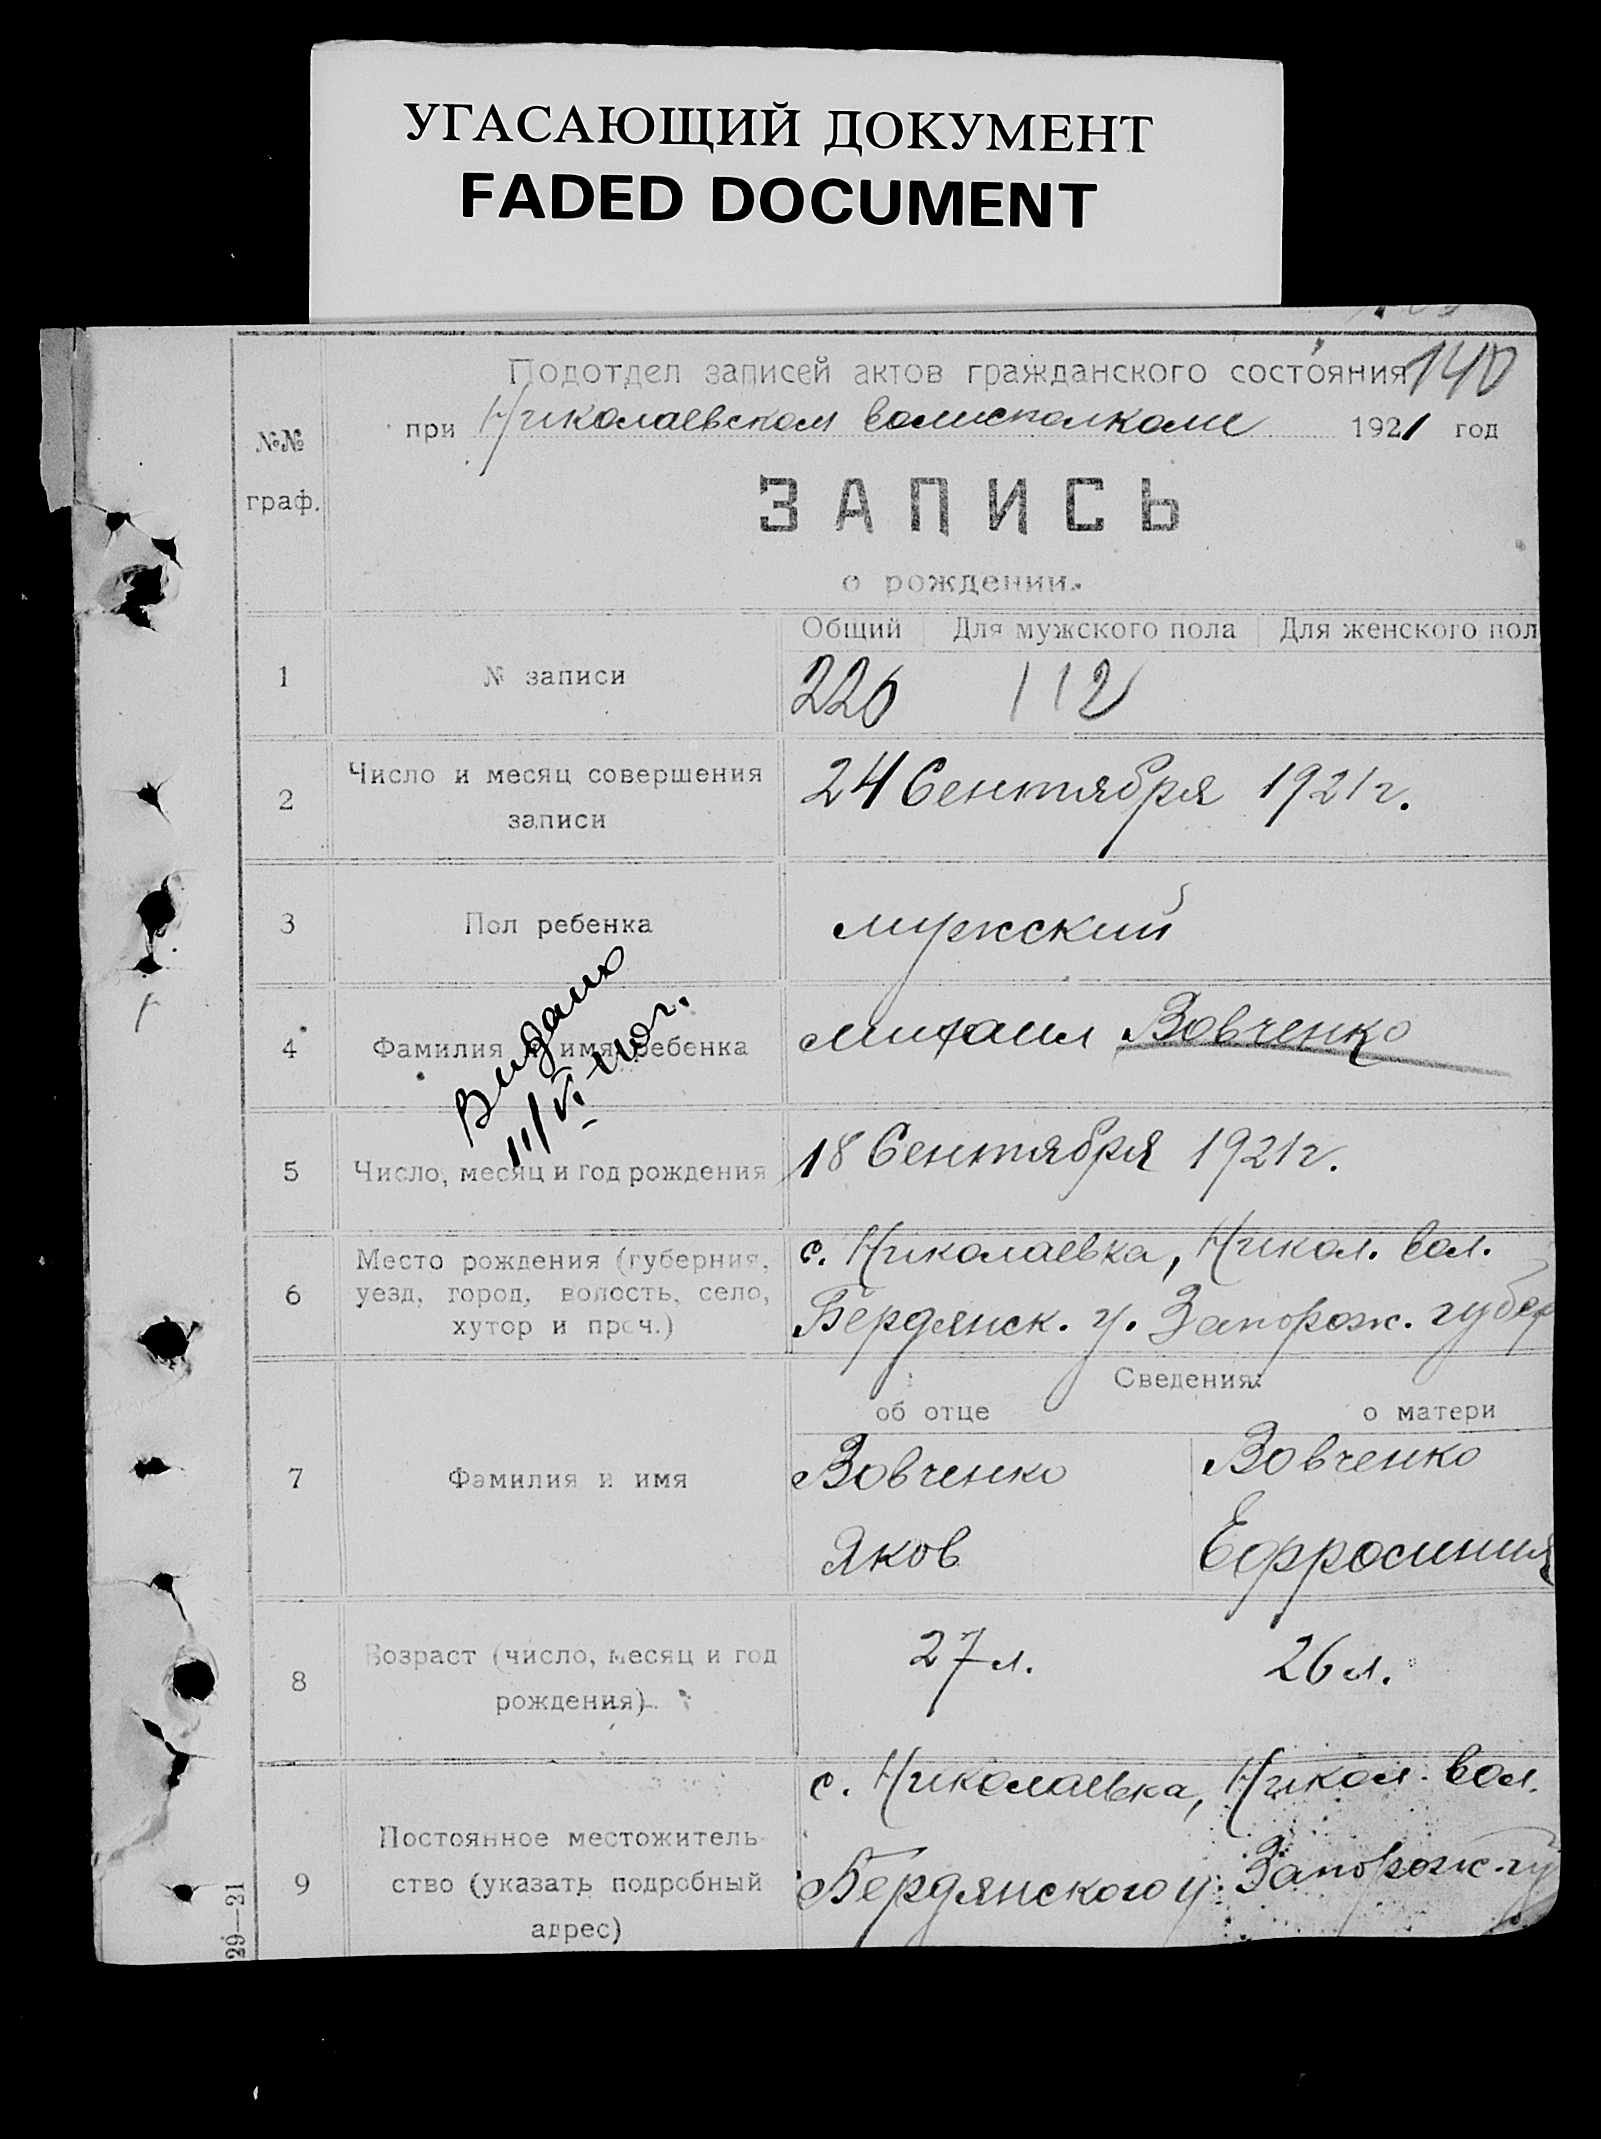 УГАСАЮЩИЙ ДОКУМЕНТ
FADED DOCUMENT
140
Подотдел записей актов гражданского состояния
при Николаевском волисполкоме 1921 год
№№
граф.
ЗАПИСЬ
о рождении.
Общий Для мужского пола Для женского пол
1 № записи 226 112
2 Число и месяц совершения
записи
24 Сентября 1921 г.
3 Пол ребенка мужский
4 Фамилия и имя ребенка Михаил Вовченко
Видано
11/VI
5 Число, месяц и год рождения 18 Сентября 1921 г.
6 Место рождения (губерния,
уезд, город, волость, село,
хутор и проч.)
с. Николаевка, Никол. вол.
Бердянск. у. Запорож. губер
Сведения:
об отце о матери
7 Фамилия и имя
Вовченко Вовченко
Яков Ефросиния
8 Возраст (число, месяц и год
рождения)
27 л. 26 л.
9 Постоянное местожитель-
ство (указать подробный
адрес)
с. Николаевка, Никол. вол.
Бердянского у. Запорож. гу
29—21